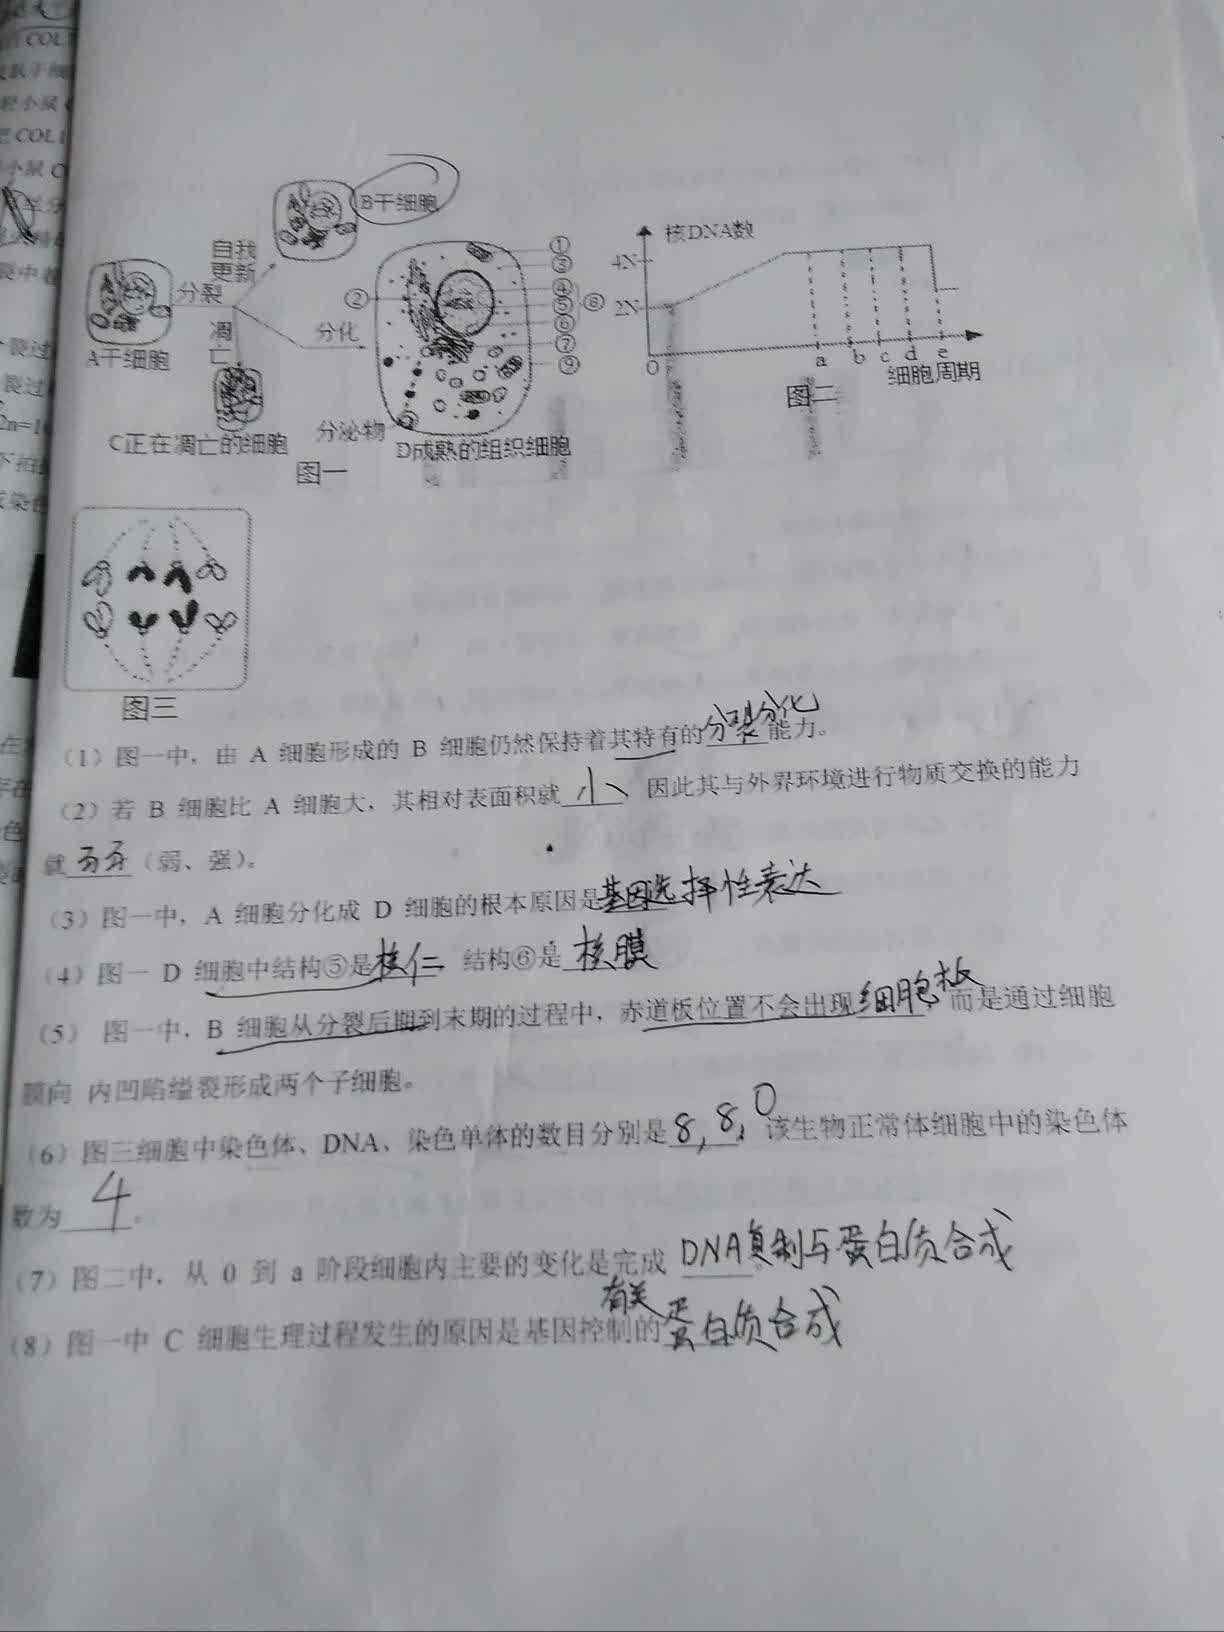 COL1
小鼠
COL1
小鼠 C
B干细胞
自我
更新
分裂
A干细胞
凋
亡
分化
①
③
②
④
⑤
⑧
⑥
⑦
⑨
分泌物
C正在凋亡的细胞
D成熟的组织细胞
图一
核DNA数
4N
2N
0
a b c d e
细胞周期
图二
图三
(1) 图一中，由 A 细胞形成的 B 细胞仍然保持着其特有的分裂分化能力。
(2) 若 B 细胞比 A 细胞大，其相对表面积就小、因此其与外界环境进行物质交换的能力
就弱（弱、强）。
(3) 图一中，A 细胞分化成 D 细胞的根本原因是基因选择性表达
(4) 图一 D 细胞中结构⑤是核仁 结构⑥是核膜
(5) 图一中，B 细胞从分裂后期到末期的过程中，赤道板位置不会出现细胞板，而是通过细胞
膜向 内凹陷缢裂形成两个子细胞。
(6) 图三细胞中染色体、DNA、染色单体的数目分别是8,8,0 该生物正常体细胞中的染色体
数为4。
(7) 图二中，从 0 到 a 阶段细胞内主要的变化是完成DNA复制与蛋白质合成。
有关
(8) 图一中 C 细胞生理过程发生的原因是基因控制的蛋白质合成